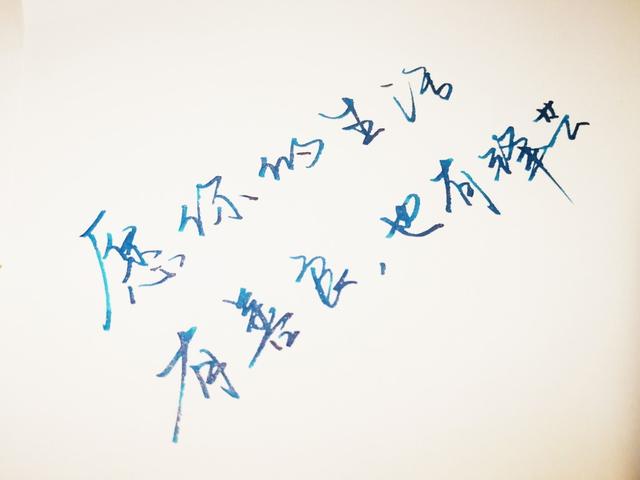 愿你的生活
有善良，也有锋芒